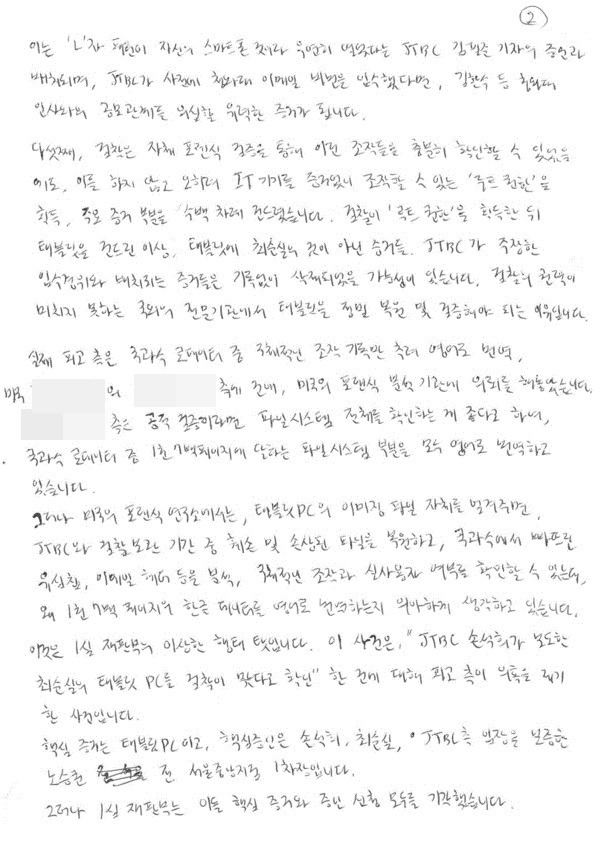 ②
이는 'L'자 패턴이 자신의 스마트폰 것이라 우연히 열었다는 JTBC 김필준 기자의 증언과
배치되며, JTBC가 사전에 청와대 이메일 비번을 입수했다면, 김한수 등 청와대
인사와의 공모관계를 의심할 유력한 증거가 됩니다.
다섯째, 검찰은 자체 포렌식 검증을 통해 이런 조작들을 충분히 확인할 수 있었음
에도, 이를 하지 않고 오히려 IT기기를 증거없이 조작할 수 있는 '루트 권한'을
획득, 주요 증거 부분을 수백 차례 건드렸습니다. 검찰이 '루트 권한'을 획득한 뒤
태블릿을 건드린 이상, 태블릿에 최순실의 것이 아닌 증거들, JTBC가 주장한
입수경위와 배치되는 증거들은 기록없이 삭제되었을 가능성이 있습니다. 검찰의 권력이
미치지 못하는 국외의 전문기관에서 태블릿을 정밀 복원 및 검증해야 되는 이유입니다.
실제 피고 측은 국과수 로데이터 중 구체적인 조작 기록만 추려 영어로 번역,
미국 의 측에 건네, 미국의 포렌식 분석 기관에 의뢰를 해놓았습니다.
측은 공적 검증이라면 파일시스템 전체를 확인하는 게 좋다고 하여,
국과수 로데이터 중 1천 7백페이지에 달하는 파일시스템 부분을 모두 영어로 번역하고
있습니다.
그러나 미국의 포렌식 연구소에서는, 태블릿PC의 이미징 파일 자체를 넘겨주면,
JTBC와 검찰 보관 기간 중 훼손 및 손상된 파일을 복원하고, 국과수에서 빠뜨린
유심칩, 이메일 헤더 등을 분석, 구체적인 조작과 실사용자 여부를 확인할 수 있는데,
왜 1천 7백 페이지의 한글 데이터를 영어로 번역하는지 의아하게 생각하고 있습니다.
이것은 1심 재판부의 이상한 행태 탓입니다. 이 사건은, "JTBC 손석희가 보도한
최순실의 태블릿PC를 검찰이 맞다고 확인" 한 건에 대해 피고 측이 의혹을 제기
한 사건입니다.
핵심 증거는 태블릿PC이고, 핵심증인은 손석희, 최순실, JTBC측 입장을 보증한
노승권 전 서울중앙지검 1차장입니다.
그러나 1심 재판부는 이들 핵심 증거와 증인 신청 모두를 기각했습니다.